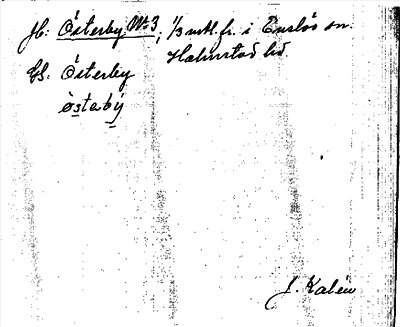 Jb: Österby No 3, 1/3 mtl. fr. i Enslöv sn.
Halmstad hd.
Us. Österby
òstabý
J. Kalén